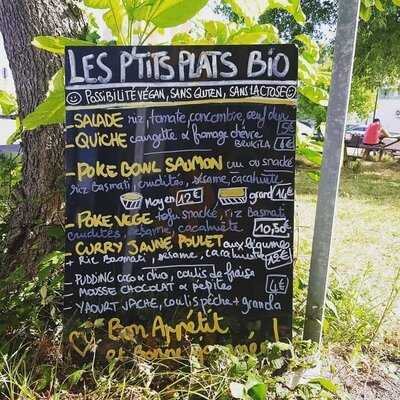 LES P'TITS PLATS BIO
POSSIBILITÉ VÉGAN, SANS GLUTEN, SANS LACTOSE
- SALADE riz, tomate concombre, oeuf dur 5€
- QUICHE courgette & fromage chèvre 4€
- POKE BOWL SAUMON cru ou snacké
riz Basmati, crudités, sésame, cacahuète
Moyen 12€ grand 14€
- POKE VEGE tofu snacké, riz Basmati
crudités, sésame, cacahuète 10,50€
- CURRY JAUNE POULET aux légumes
- Riz Basmati, sésame, cacahuète 12€
- PUDDING COCO & CHIA, coulis de fraise
- MOUSSE CHOCOLAT & pépites 4€
- YAOURT VACHE, coulis pêche + granola
Bon Appétit
et Bonne !